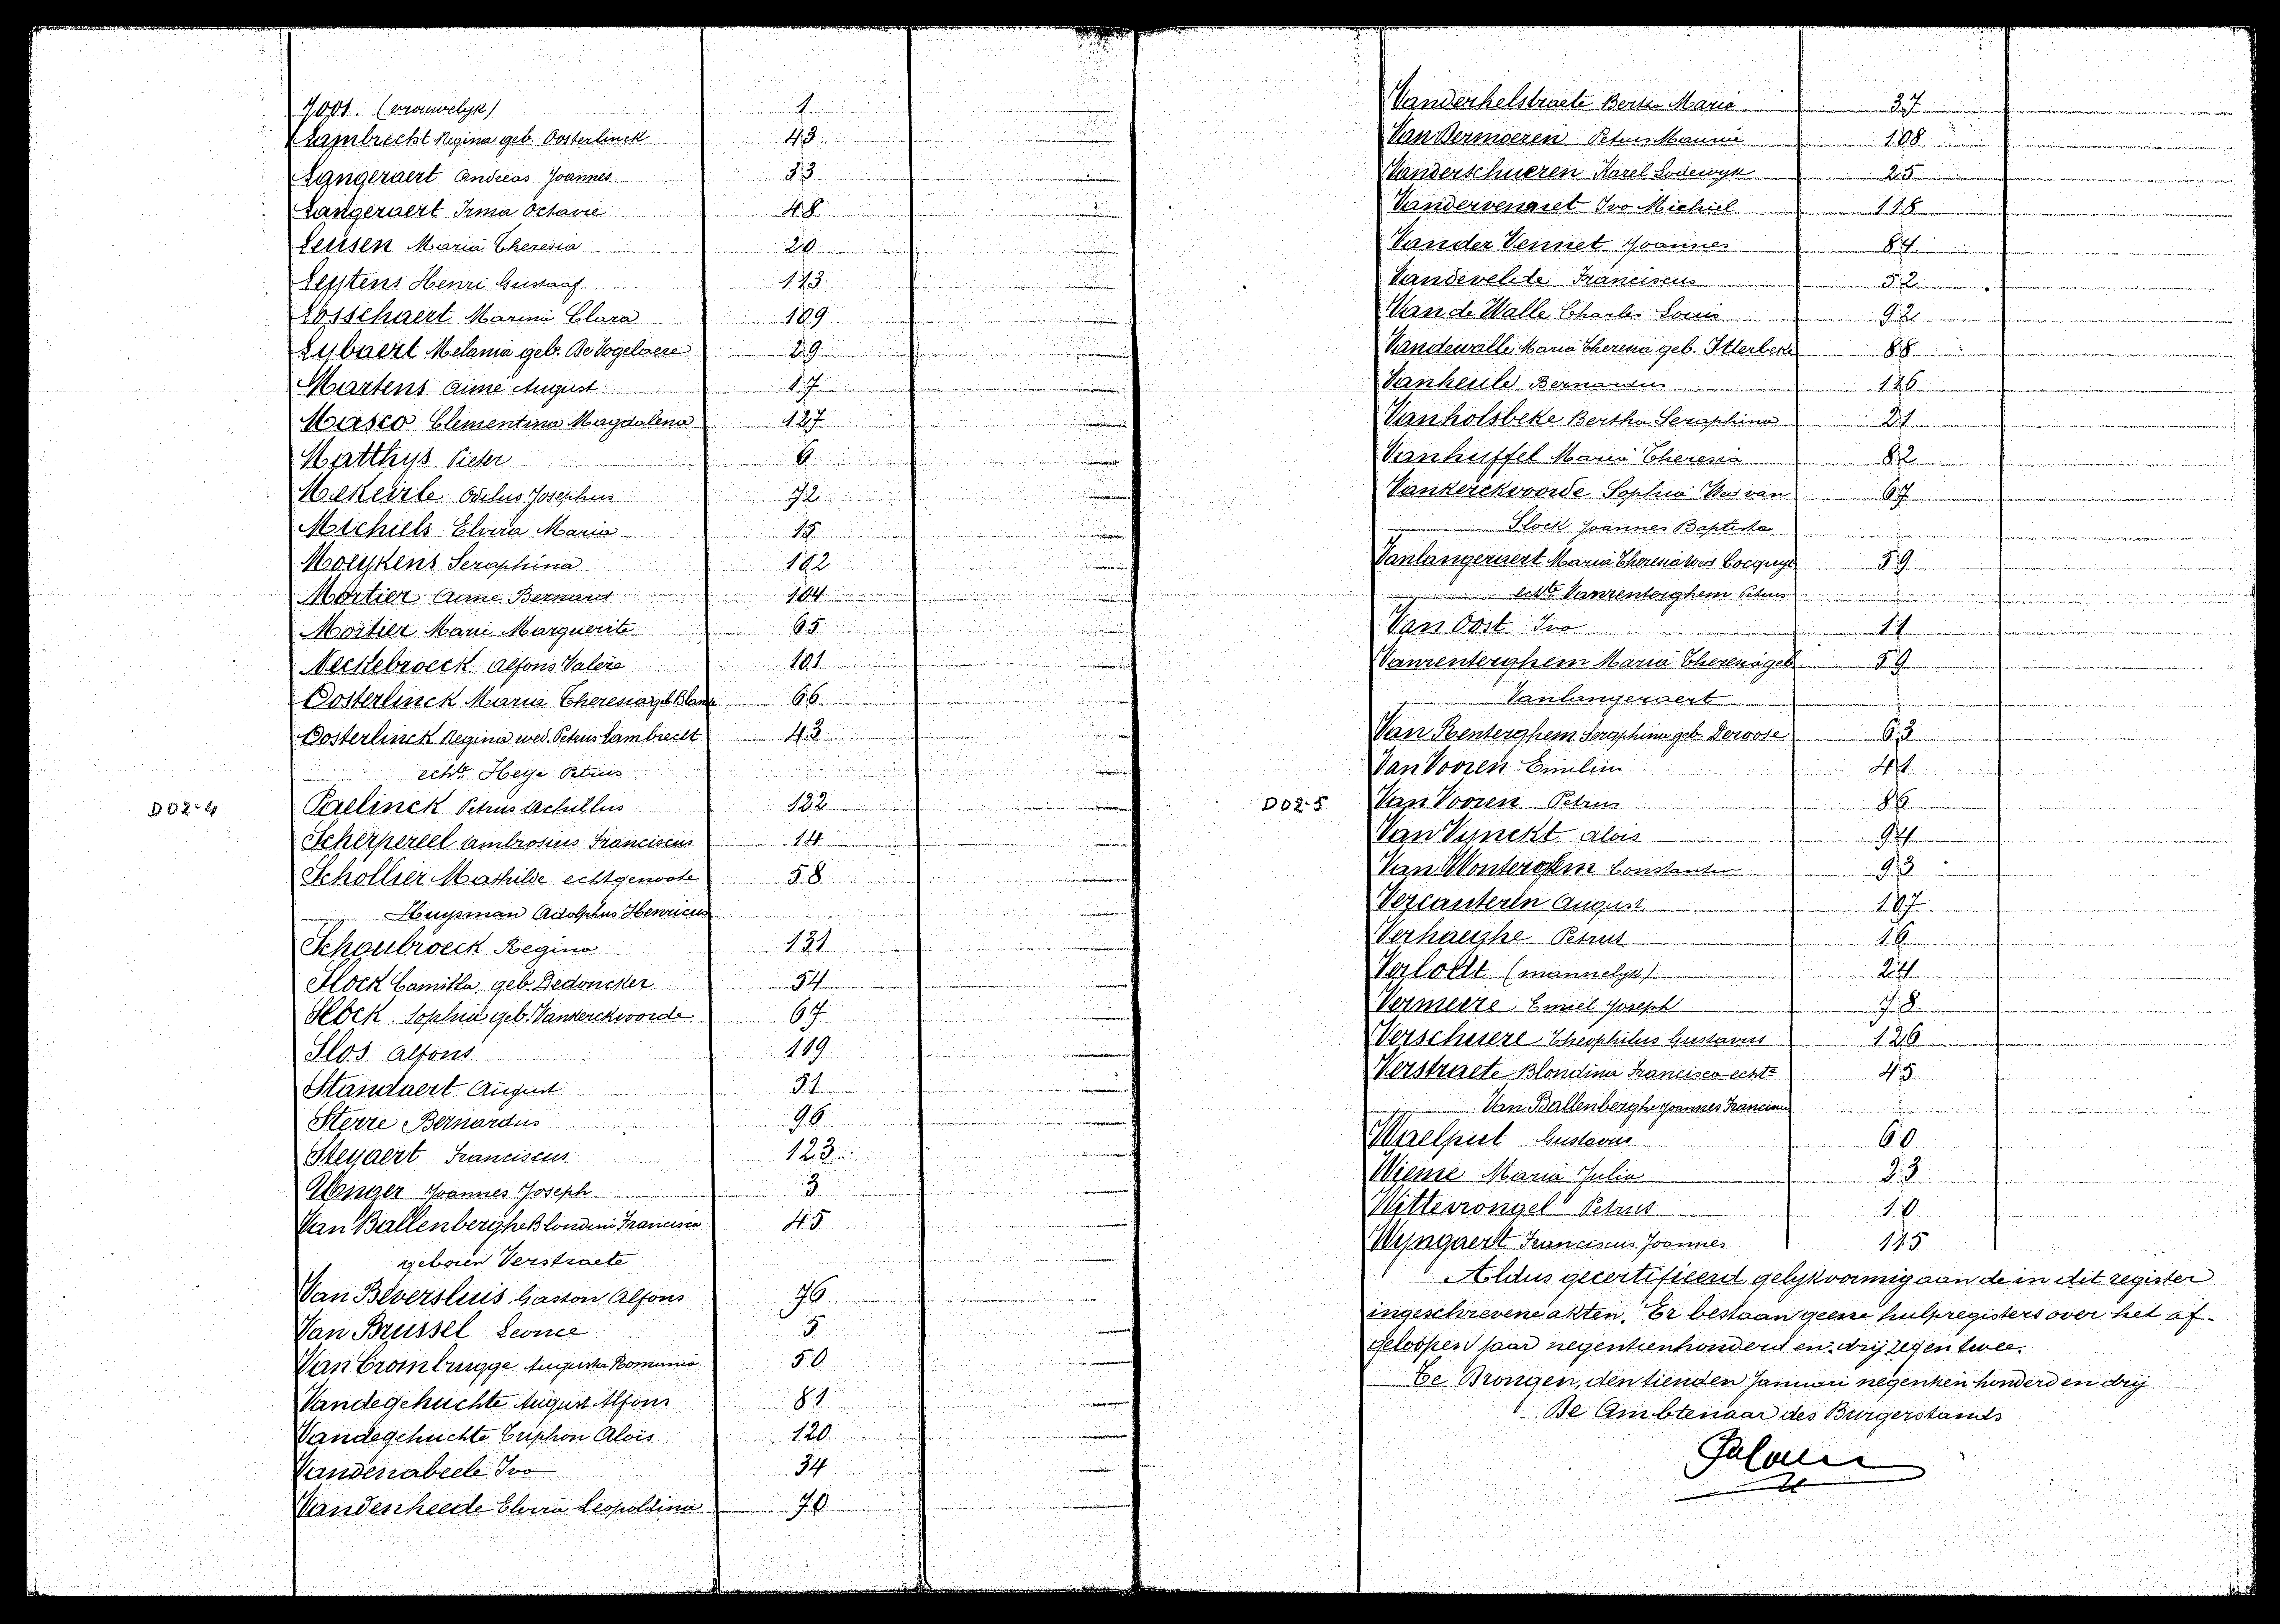 (vrouwelyk) 1
Lambrecht Regina geb. Oosterlinck 43
Langeraert Andreas Joannes 33
Langeraert Irma Octavie 48
Leusen Maria Theresia 20
Leystens Henri Gustaaf 113
Losschaert Marina Clara 109
Lybaert Melania geb. De Vogelaere 29
Martens Aimé August 17
Masco Clementina Magdalena 127
Matthys Pieter 6
Mekeirle Odilus Josephus 72
Michiels Elvira Maria 15
Moeykens Seraphina 102
Mortier Aime Bernard 104
Mortier Marie Marguerite 65
Meckebroeck Alfons Valère 101
Oosterlinck Maria Theresia geb. 66
Oosterlinck Regina wed. Petrus Lambrecht 43
echte Heye Petrus
D02-4
Paelinck Petrus Achillus 122
Scherpereel Ambrosius Franciscus 14
Schollier Mathilde echtgenoote 58
Huysman Adolphus Henricus
Schoubroeck Regina 131
Slock Camilla geb. Dedoncker 54
Slock Sophia geb. Vankerckvoorde 67
Slos Alfons 119
Standaert August 51
Sterre Bernardus 96
Steyaert Franciscus 123
Joannes Joseph 3
Van Ballenberghe Blondine Francisca 45
geboren Verstraete
Van Beversluis Gaston Alfons 76
Van Brussel Leonce 5
Van Crombrugge Augusta Romania 50
Vandegehuchte August Alfons 81
Vandegehuchte Triphon Alois 120
Vandenabeele Ivo 34
Vandenheede Elvira Leopoldina 70
Vanderhelstraete Bertha Maria 37
Van Dermoeren Petrus 108
Vanderschueren Karel Lodewyk 25
Vandervennet Ivo Michiel 118
Vander Vennet Joannes 84
Vandevelde Franciscus 52
Van de Walle Charles Louis 92
Vandewalle Maria Theresia geb. Itterbeke 88
Vanheule Bernardus 116
Vanholsbeke Bertha Seraphina 21
Vanhuffel Maria Theresia 82
Vankerckvoorde Sophia Wed van 67
Slock Joannes Baptista
Vanlangeraert Maria Theresia wed Cocquyt 59
echte Vanrenterghem Petrus
Van Oost Ivo 11
Vanrenterghem Maria Theresia geb 59
Vanlangeraert
Van Renterghem Seraphina geb. Dewoose 63
Van Vooren Emilia 41
D02-5
Van Vooren Petrus 86
Van Vynckt Alois 94
Van Wonterghem Constantin 93
Vercauteren August 107
Verhaeghe Petrus 16
Verloedt (mannelyk) 24
Vermeire Emiel Joseph 78
Verschuere Theophilus Gustavus 126
Verstraete Blondina Francisca echte 45
Van Ballenberghe Joannes Franciscus
Waelput Gustavus 60
Wieme Maria Julia 23
Wittevrongel Petrus 10
Wyngaert Franciscus Joannes 125
Aldus gecertificeerd gelykvormig aan de in dit register
ingeschrevene akten. Er bestaan geene hulpregisters over het af-
geloopen jaar negentienhonderd en twee.
Te Drongen, den tienden Januari negentien honderd en drij
De Ambtenaar des Burgerstands